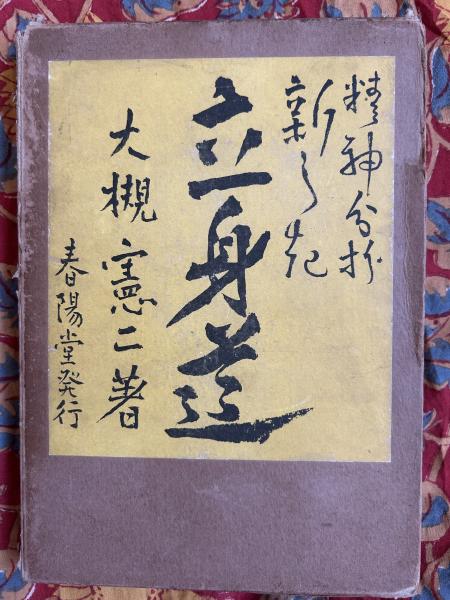 精神分析
新しき
立身道
大槻憲二著
春陽堂発行